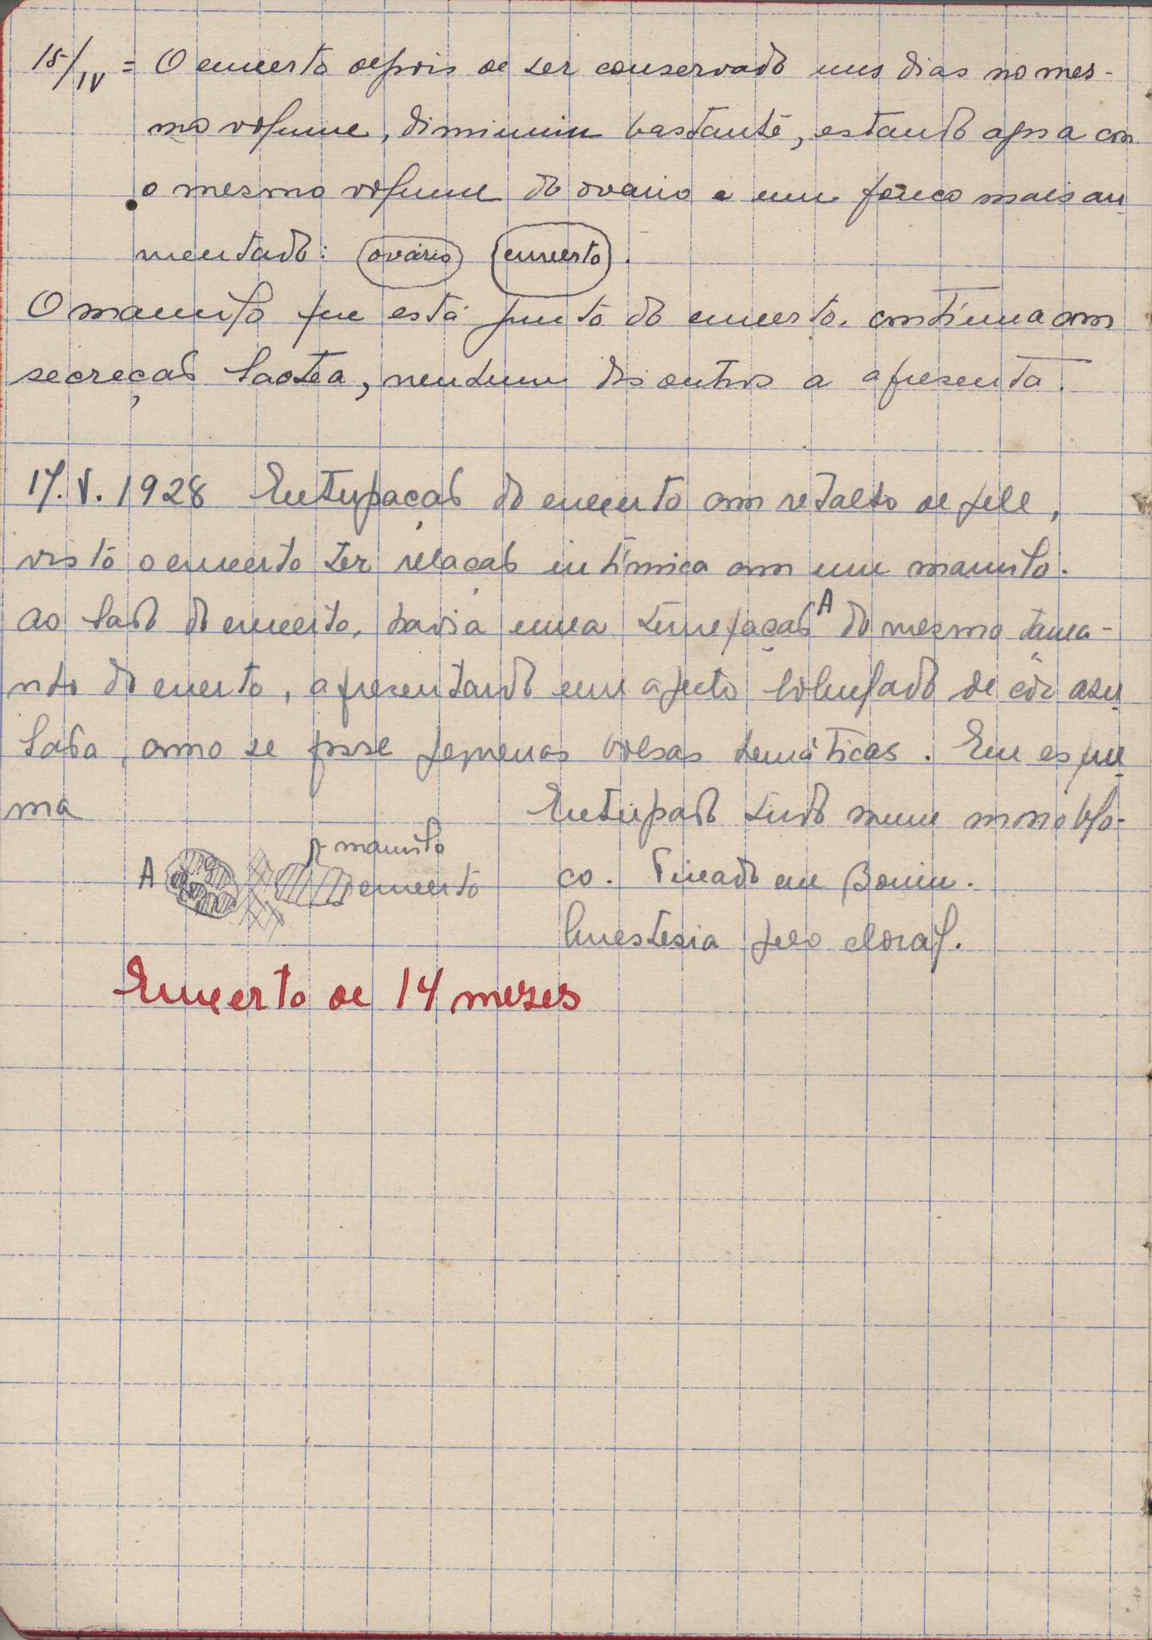 15/IV = O enxerto depois de ser conservado uns dias no mes-
mo volume, diminuiu bastante, estando agora com
o mesmo volume do ovário e um pouco mais au
mentado: ovário enxerto.
O mamilo que está junto do enxerto, continua com
secreção láctea, nenhum dos outros a apresenta.
17.V.1928 Extirpação do enxerto com retalho de pele,
visto o enxerto ter relação intímica com um mamilo.
Ao lado do enxerto, havia uma tumefação A do mesmo tama-
nho do enxerto, apresentando um aspeto lobulado de côr azu
lada, como se fosse pequenas bolsas hemáticas. Em esque
ma
Extirpado tudo num monoblo-
co. Fixado em Bouin.
Anestesia pelo cloral.
A mamilo
enxerto
Enxerto de 14 mezes